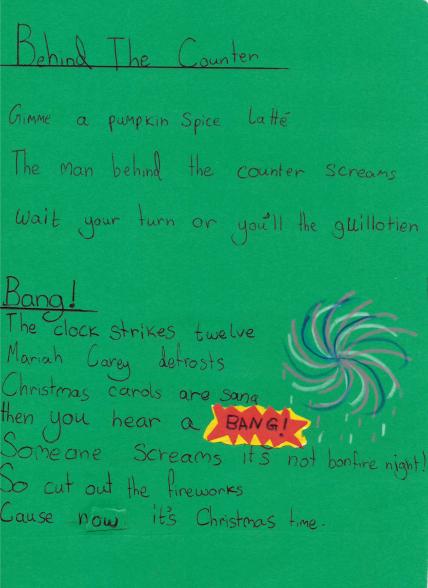 Behind The Counter
Gimme a pumpkin Spice Latté
The man behind the counter screams
Wait your turn or you'll the guillotien
Bang!
The clock strikes twelve
Mariah Carey defrosts
Christmas carols are sang
then you hear a BANG!
Someone Screams it's not bonfire night!
So cut out the fireworks
Cause now it's Christmas time.